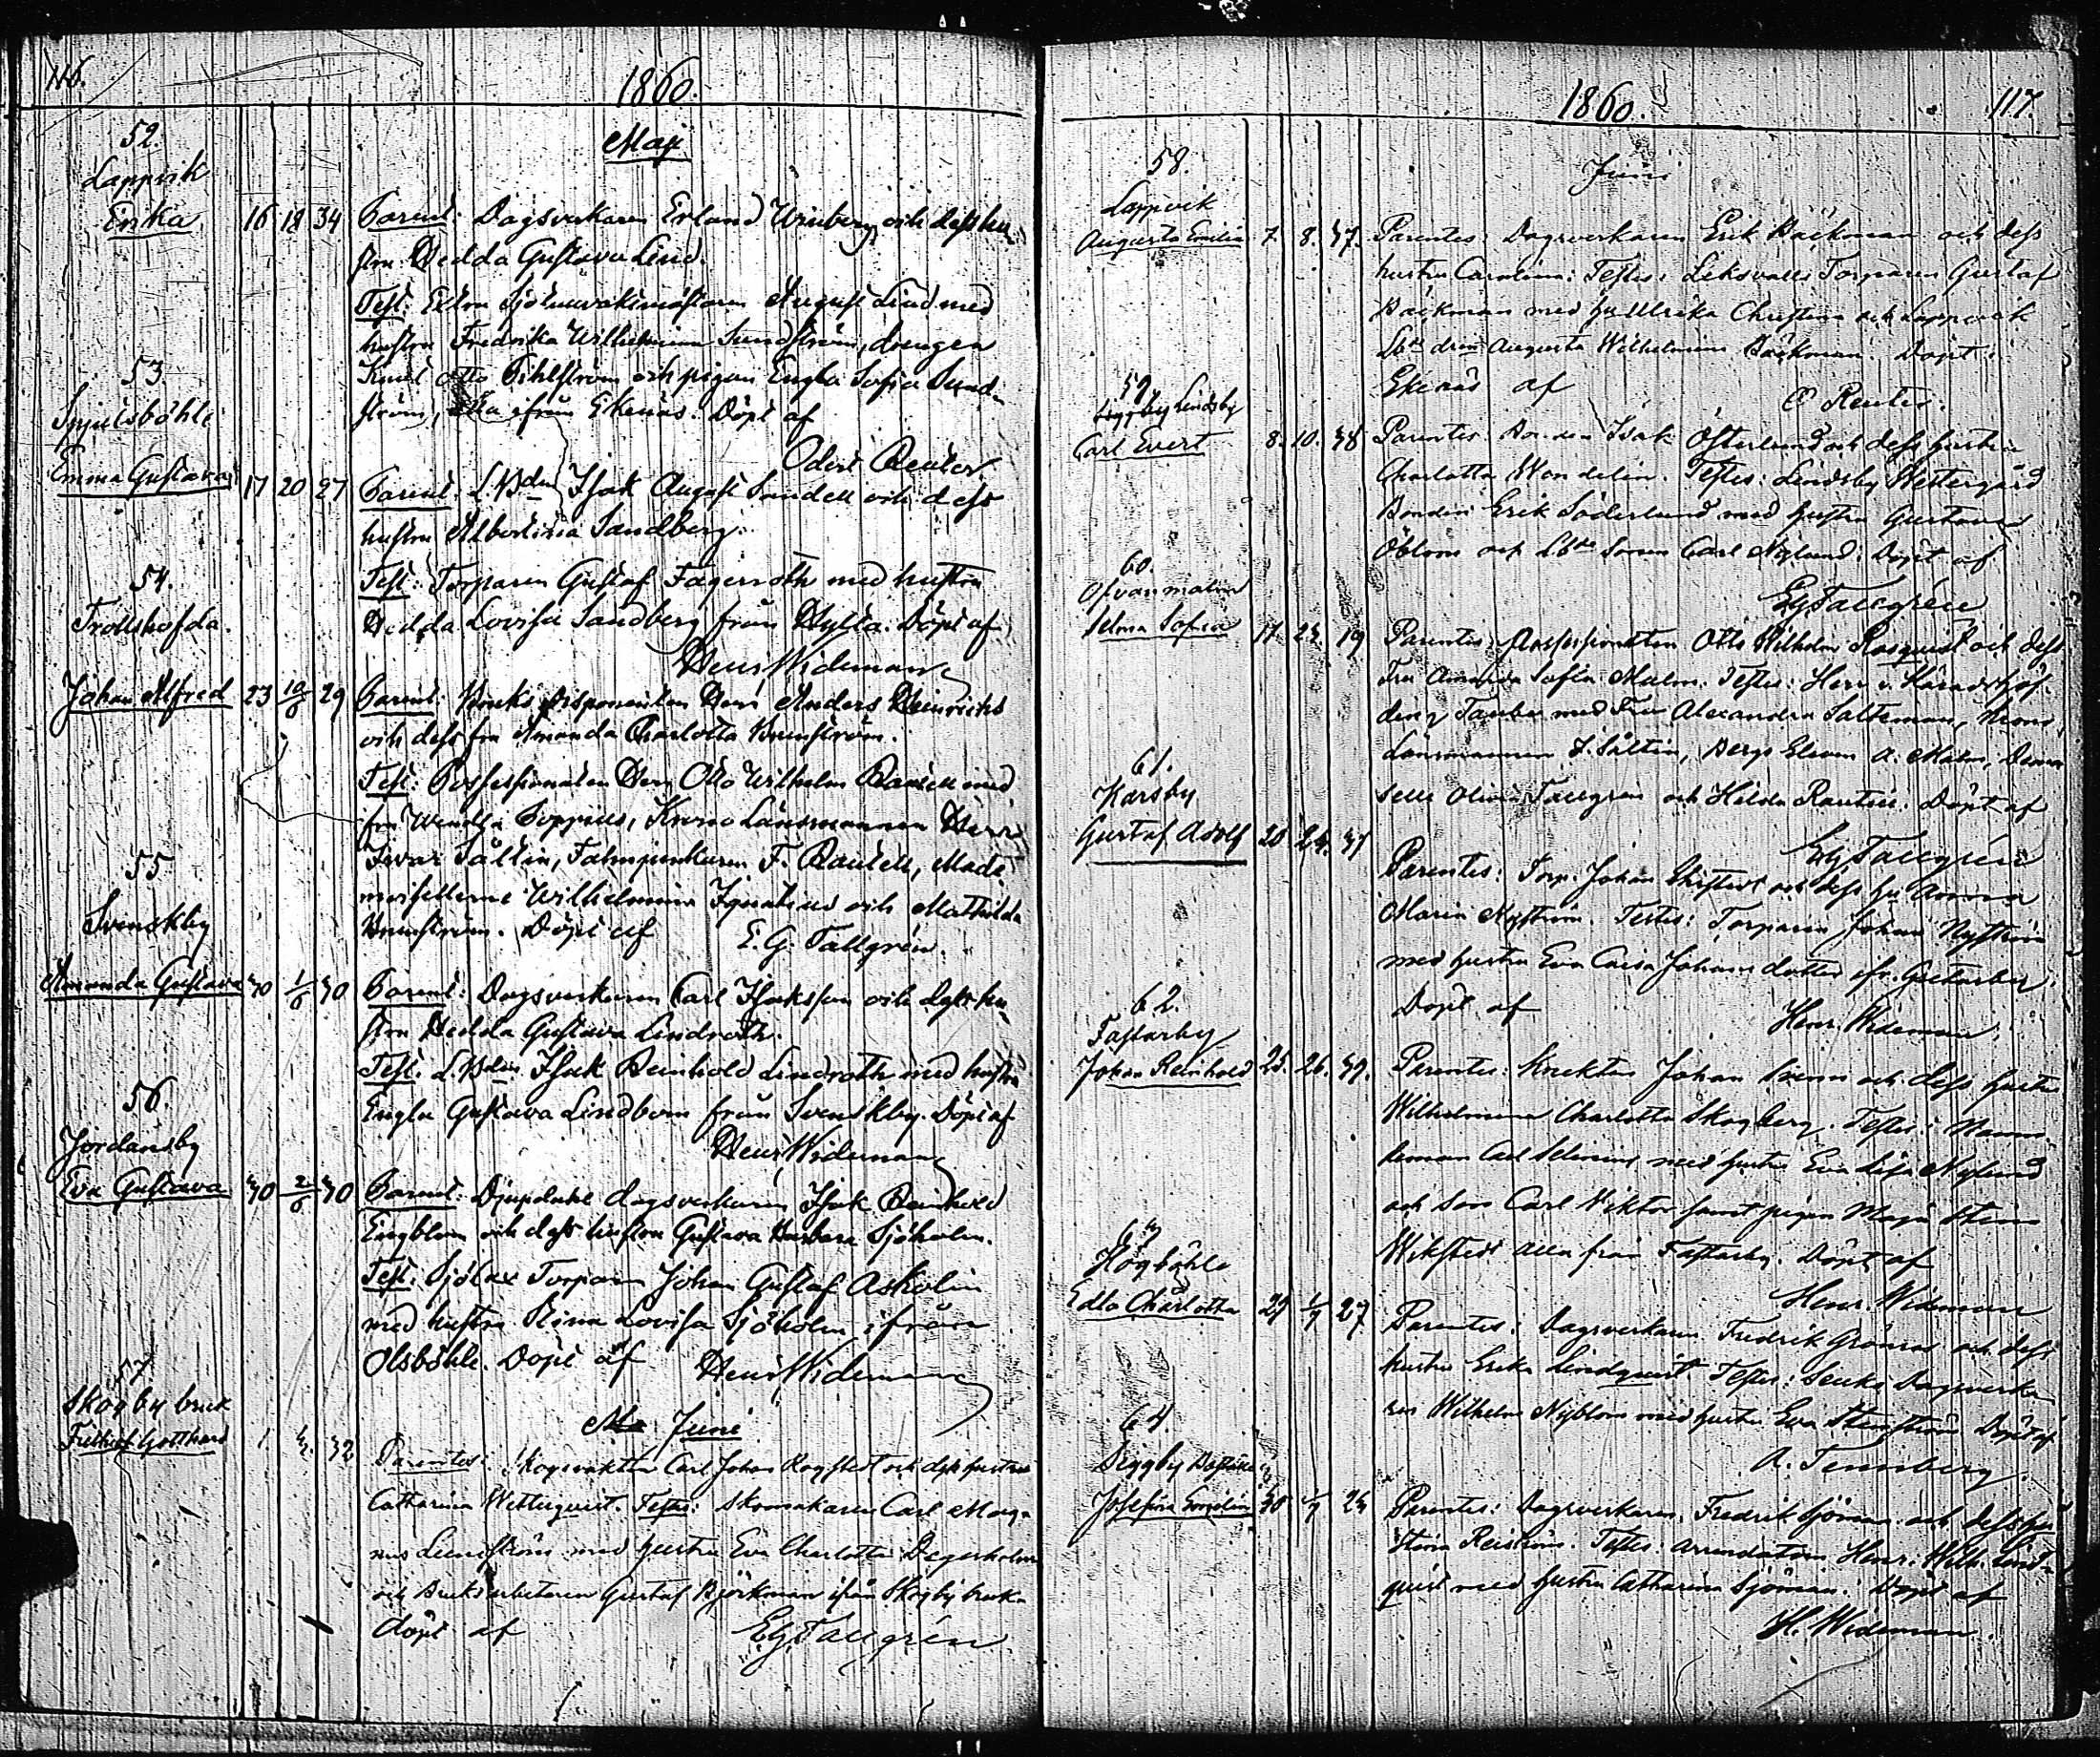 116.
1860.
Maji
52.
Lappvik
Erika 16 18 34 Parent: Dagsverkaren Erland Winberg och dess hu-
stru Hedda Gustava Lind.
Test: Extra Sjötullvaktmästaren August Lind med
hustru Fredrika Wilhelmina Sundström, drengen
Knut Otto Pihlström och pigan Engla Sofia Sund-
ström, alla ifrån Ekenäs. Döpt af
Odert Reuter
53
Spjutsböhle
Emma Gustava 17 20 27 Parent: L. Bdn Isak August Sandell och dess
hustru Albertina Sandberg.
Test: Torparen Gustaf Fagerroth med hustru
Hedda Lovisa Sandberg från Hylta. Döpt af
Henr Wideman
54.
Trollshofda.
Johan Alfred 23 10/6 29 Parent: Bruks Disponenten Herr Anders Heinrichs
och dess fru Amanda Charlotta Brunström.
Test: Possessionaten Herr Otto Wilhelm Rantell med
fru Wendla Poppius, Krono Länsmannen Herr
Ivar Sältin, Falnjunkaren F. Rantell, Made-
moisellerne Wilhelmina Ignatius och Mathilda
Brunström. Döpt af E. G. Tallgrén.
55
Svenskby
Amanda Gustava 30 1/6 30 Parent: Dagsverkaren Carl Isaksson och dess hu-
stru Hedda Gustava Lindroth.
Test. L. Bdn Isak Reinhold Lindroth med hustru
Engla Gustava Lindbom från Svenskby. Döpt af
Henr Wideman
56.
Jordansby
Eva Gustava 30 2/6 30 Parent: Djupdahl dagsverkaren Isak Reinhold
Engblom och dess hustru Gustava Barbara Sjöholm.
Test. Sjölax Torparen Johan Gustaf Askolin
med hustru Stina Lovisa Sjöholm ifrån
Olsböhle. Döpt af Henr Wideman
Juni
57
Skogby bruk
Frithiof Gotthard 1. 3. 32 Parentes: Skogvaktaren Carl Johan Rogstedt och dess hustru
Catharina Wetterqvist. Testes: Skomakaren Carl Mag-
nus Lundström med hustru Eva Charlotta Degerholm
och Bruksarbetaren Gustaf Björkman ifrån Skogby bruk.
döpt af EG Tallgrén
1860. 117.
Juni
58.
Lappvik
Augusta Emilia 7. 8. 37. Parentes: Dagsverkaren Erik Bäckman och dess
hustru Carolina: Testes: Leksvalls Torparen Gustaf
Bäckman med hu Ulrika Christina och Lappvik
Augusta Wilhelmina Bäckman. Döpt i
Ekenäs af O Reuter.
59.
Lindsby
Carl Evert 8. 10. 38 Parentes: Isak Österlund och dess hustru
Charlotta Wendelin. Testes: Lindsby Westergård
Bonden Erik Söderlund med hustru Gustava
Öblom och Lbde Sonen Carl Nylund. Döpt af
EG Tallgrén
60.
Ofvanmalm
Selma Sofia 17. 23. 19 Parentes: Possessionaten Otto Wilhelm Rosquist och dess
Fru Amanda Sofia Malm. Testes: Herr v. Häradshöf-
ding Tauber med Fru Alexandra Salteman, Krono
Länsmannen I. Sältin, Bergs Eleven A. Malm, Demoi
selle Olivia Tallgren och Hilda Rantell. Döpt af
EG Tallgrén
61.
Karsby
Gustaf Adolf 20 24. 37 Parentes: Torp. Johan och dess hu Anna
Maria Nyström. Testes: Torparen Johan Nyström
med hustru Eva Caisa Johans dotter ifr. Gretarby.
Döpt af Henr. Wideman.
62.
Fastarby
Johan Reinhold 25. 26. 39. Parentes: Inhektes Johan och dess hustru
Wilhelmina Charlotta Skogberg. Testes: Namn
deman Carl med hustru Eva Lisa Nylund
och Son Carl Wiktor samt pigan Maja Stina
Wikstedt alla från Fastarby. Döpt af
Henr. Wideman
63
Högböhle
Edla Charlotta 29 1/7 27 Parentes: Dagsverkaren Fredrik Grönros och dess
hustru Erika Lindqvist Testes: Dagsverka
ren Wilhelm Nyblom med hustru Eva Döpt af
A. Tennberg.
64.
Josefina 30 1/7 Parentes: Dagsverkaren Fredrik Sjöman och dess hu
Stina Reiström. Testes: Arrendatorn Henr. Wilh. Lind-
qvist med hustru Catharina Sjöman. Döpt af
H. Wideman.